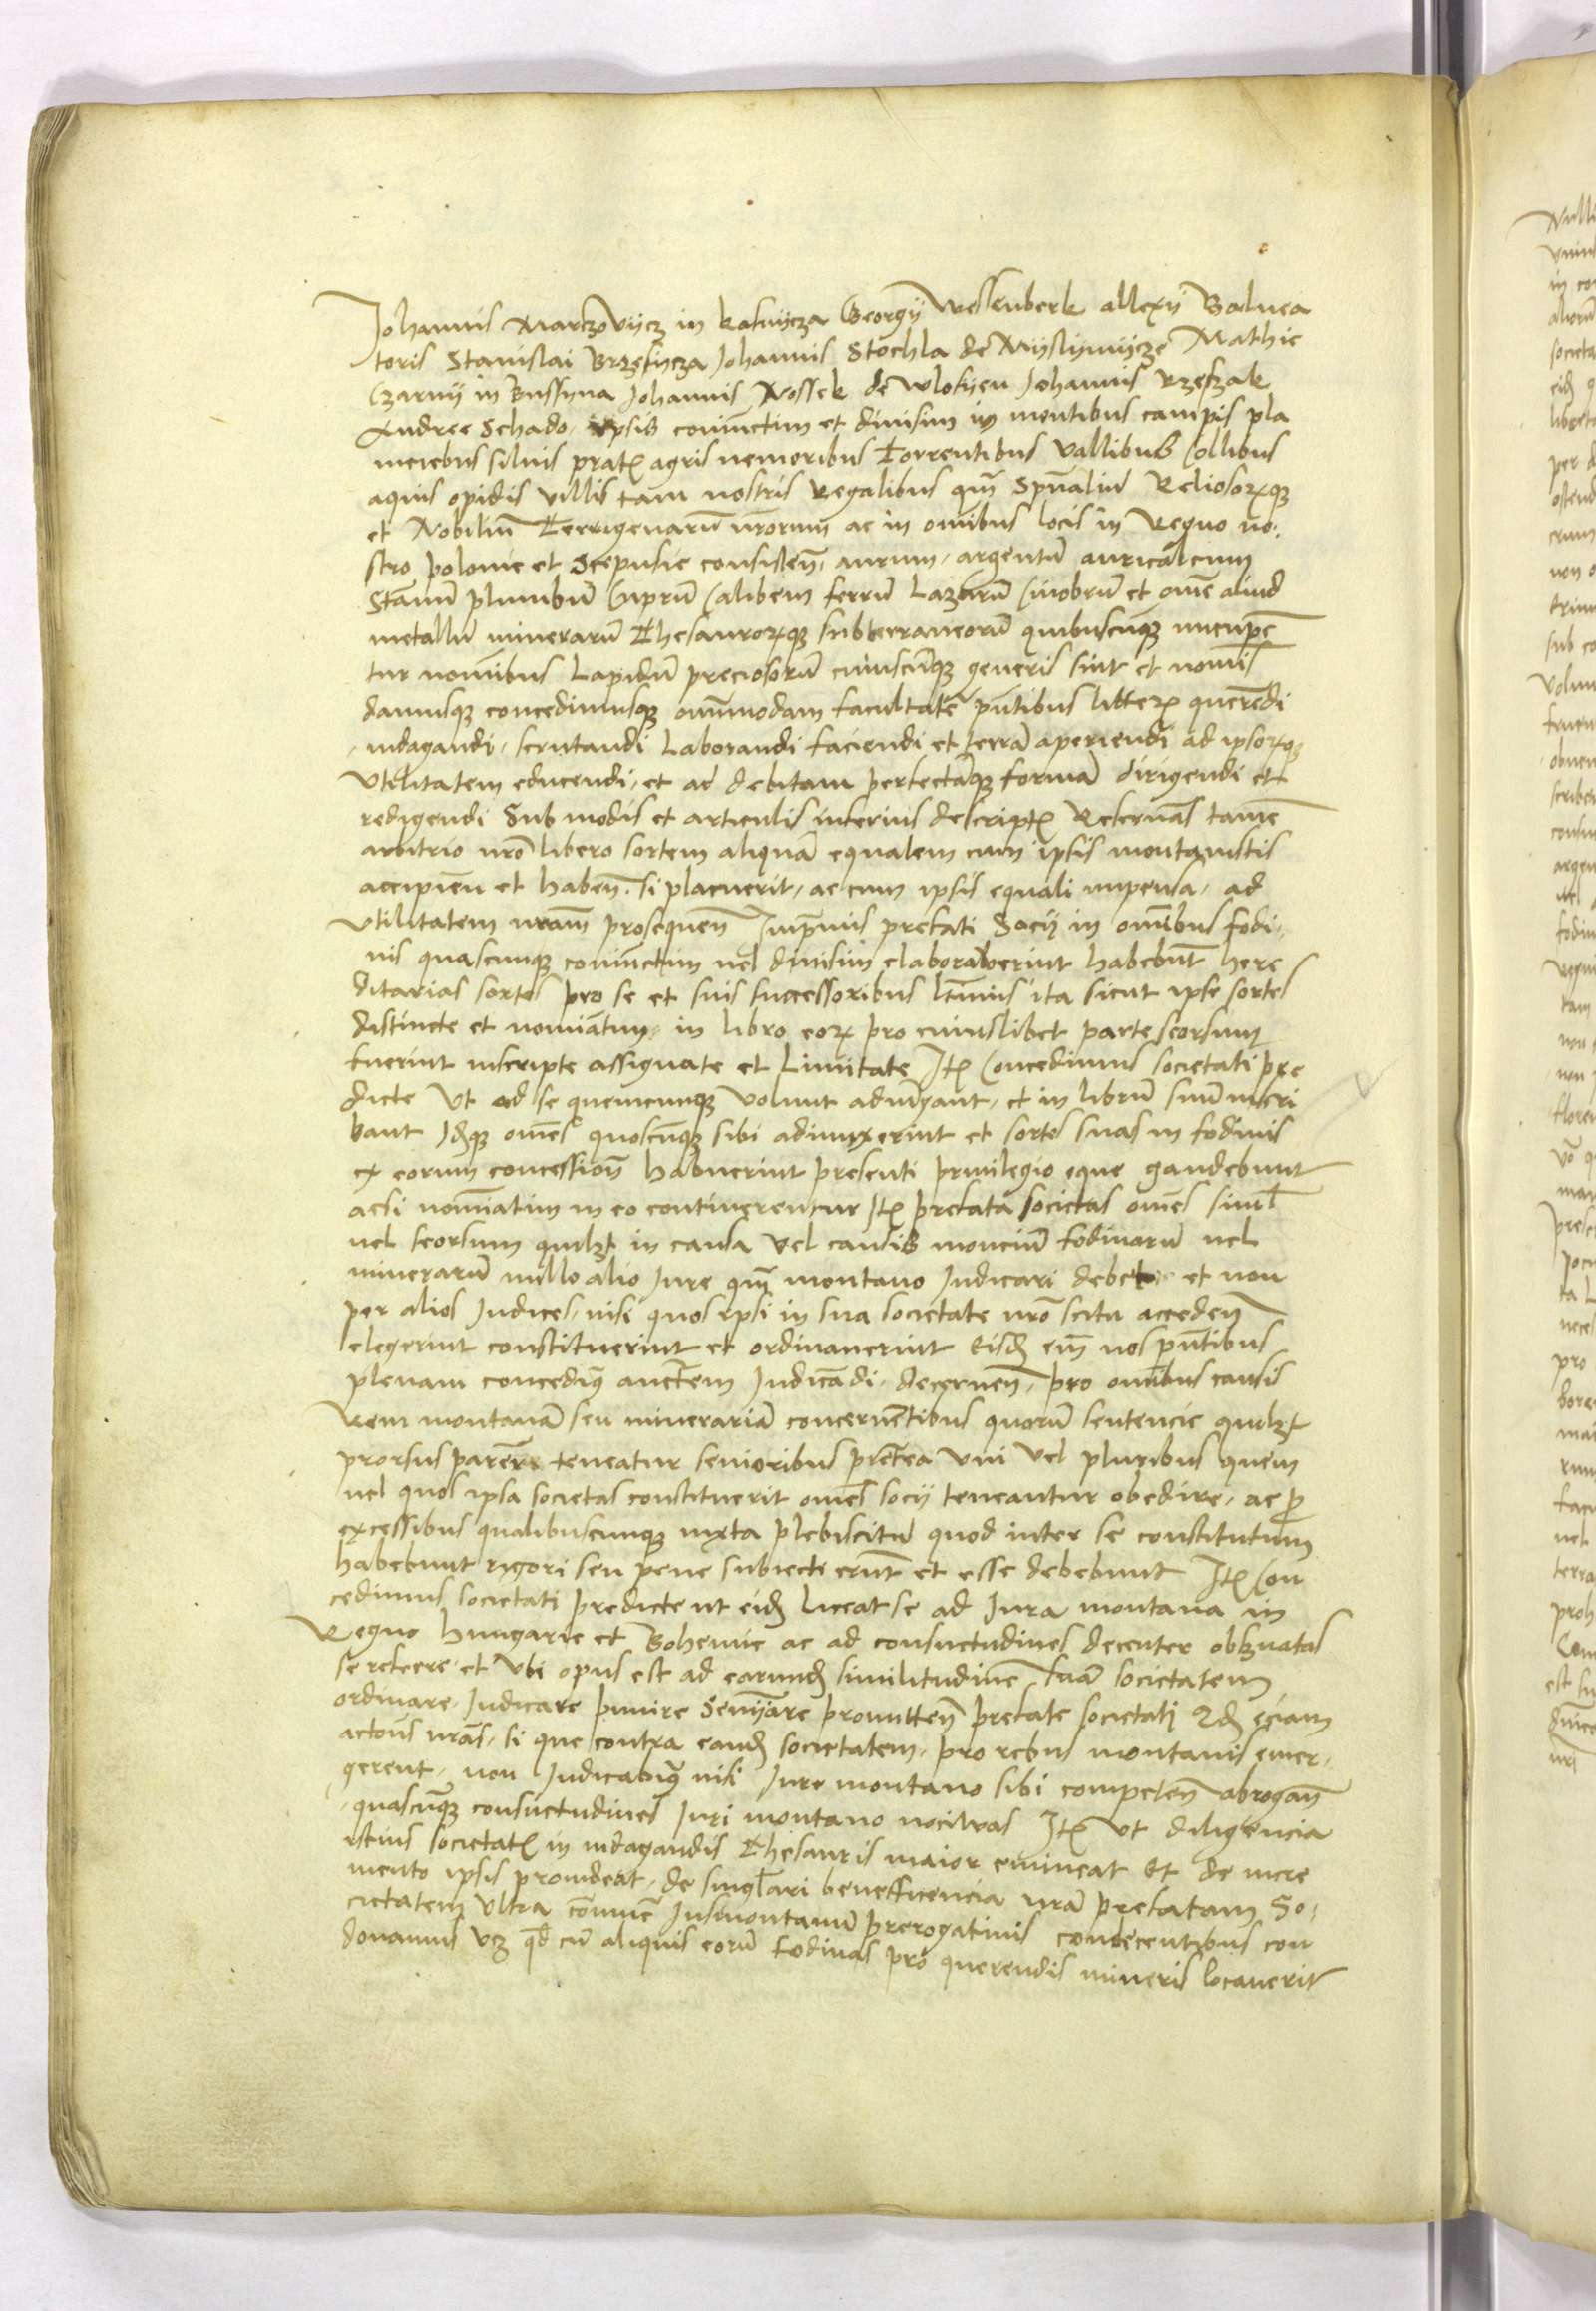 Johannis Marczovijcz in kasnijcza Georgij Wessenberk allexij Balnea
toris Stanislai Brzesijcza Johannis Stochla de Mijslijmijcze Mathie
Czarnij in Bussijna Johannis Nossek de wlosijen Johannis Rzeszak
Andree Schado, ipsis coniunctim et diuisim in montibus campis pla
nitiebus siluis prat agris nemoribus Torrentibus Vallibus Collibus
aquis opidis villis tam nostris Regalibus qm̄ Spūaliū Reliosorꝝqꝫ
et Nobiliū Terrigenarū nrōrum ac in omībus locis in Regno no:
stro polonie et Scepusie consisteñ, aurum, argentū auricalcum
Stannū plumbum Cuprū Calibem ferrū Lazurū Cinobrū et omē aliud
metallū minerarū Thesaurorꝝqꝫ subterraneorū quibuscūqꝫ nucupē
tur nomībus Lapidū preciosorū cuiuscūqꝫ generis sint et nomīs
damusqꝫ concedimusqꝫ omīmodam facultatē pn̄tibus litterꝝ querēdi
indagandi, scrutandi Laborandi faciendi et terrā aperiendi ad ipsorꝝqꝫ
Vtilitatem educendi, et ad debitam perfectāqꝫ formā dirigendi et
redigendi Sub modis et articulis inferius descript Reseruās tamē
arbitrio nrō libero sortem aliquā equalem cum ipsis montanistis
accipieñ et habeñ. si placuerit, ac cum ipsis equali impensa, ad
Vtilitatem nrām prosequeñ Imp̄mis prefati Socij in omībus fodi,
nis quascunqꝫ coniunctim uel diuisim elaborauerint habebūt here
ditarias sortes pro se et suis successoribus ltīmis ita sicut ipse sortes
distincte et nomīatim, in libro eorꝝ pro cuiuslibet parte seorsum
fuerint inscripte assignate et Limitate Itē Concedimus societati pre
dicte Vt ad se quemcunqꝫ Volunt adiūgant, et in librū suum inscri
bant Idqꝫ omēs quoscūqꝫ sibi adiunxerint et sortes suas in fodinis
ex eorum concessioñ habuerint presenti priuilegio eque gaudebunt
acsi nomīatim in eo continerentur Itē prefata societas omēs simul
uel seorsum quilꝫt in causa Vel causis monciū fodinarū uel
minerarū nullo alio Iure qm̄ montano Iudicari debet et non
per alios Iudices, nisi quos ipsi in sua societate nrō scitu accedeñ
elegerint constituerint et ordinauerint Eisdē em̄ nos pn̄tibus
plenam concedimꝰ auctem Iudicādi, decerneñ, pro omībus causis
Rem montanā seu minerariā concernētibus quorū sentencie quilꝫt
prorsus parēre teneatur senioribus pretea Vni Vel pluribus quem
uel quos ipsa societas constituerit omēs socij teneantur obedire, ac ꝓ
excessibus qualibuscunqꝫ iuxta plebiscitū quod inter se constitutum
habebunt rigori seu pene subiecti erūt et esse debebunt Itē Con
cedimus societati predicte ut eidē liceat se ad Iura montana in
Regno Hungarie et Bohemie ac ad consuetudines decenter obseruatas
se referre, et Vbi opus est ad earundē similitudinē suā societatem
ordinare, Iudicare punire Senijare promitteñ prefate societati Qd eciam
actoūs nrās, si que contra eandē societatem, pro rebus montanis emer,
gerent, non Iudicabimꝰ nisi Iure montano sibi competeñ abrogañ
quascūqꝫ consuetudines Iuri montano nociuas Itē Vt diligencia
istius societat in indagandis Thesauris maior emineat Et de incre
mento ipsis prouideat, de singlari benefficencia nrā prefatam So,
cietatem Vltra cōmune Ius montanū prerogatiuis condecentibus con
donamus vꝫ qd cū aliquis eorū fodinas pro querendis mineris locauerit